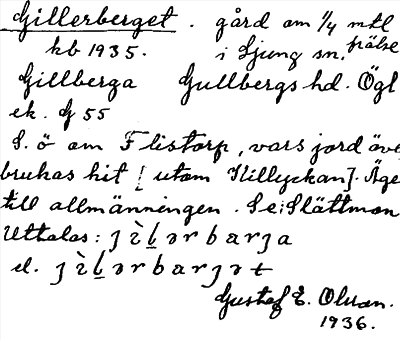 Gillerberget. gård om 1/4 mtl
kb 1935. i Ljung sn. frälse
Gillberga Gullbergs hd. Ögl
ek. G 55
S. ö om Flistorp, vars jord äve
brukas hit [utom Killyckan]. Äge
till allmänningen. Se: Slättmon
Uttalas: ȷ ì l̲ ə r b a r ȷ a
el. ȷ ì l̲ ə r b a r ȷ ə t
Gustaf E. Olsson.
1936.